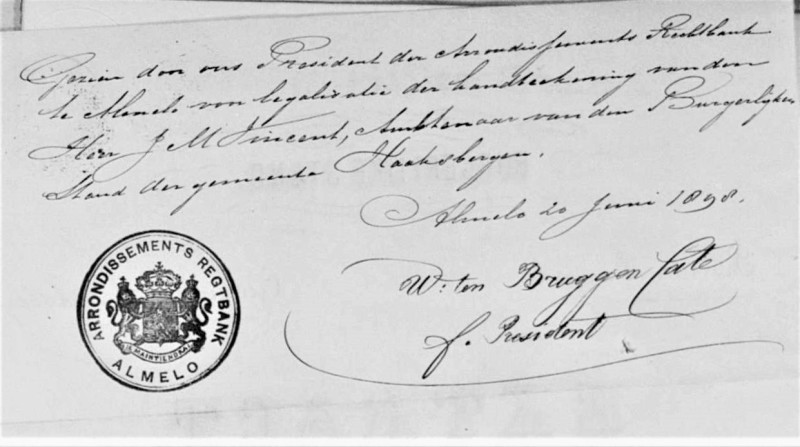 Gezien door ons President der Arrondissements Rechtbank
te Almelo voor legalisatie der handteekening van den
Heer J M Vincent, Ambtenaar van den Burgerlijken
Stand der gemeente Haaksbergen.
Almelo 20 Juni 1898.
W. ten Bruggen Cate
f. President
ARRONDISSEMENTS REGTBANK
JE MAINTIENDRAI
ALMELO